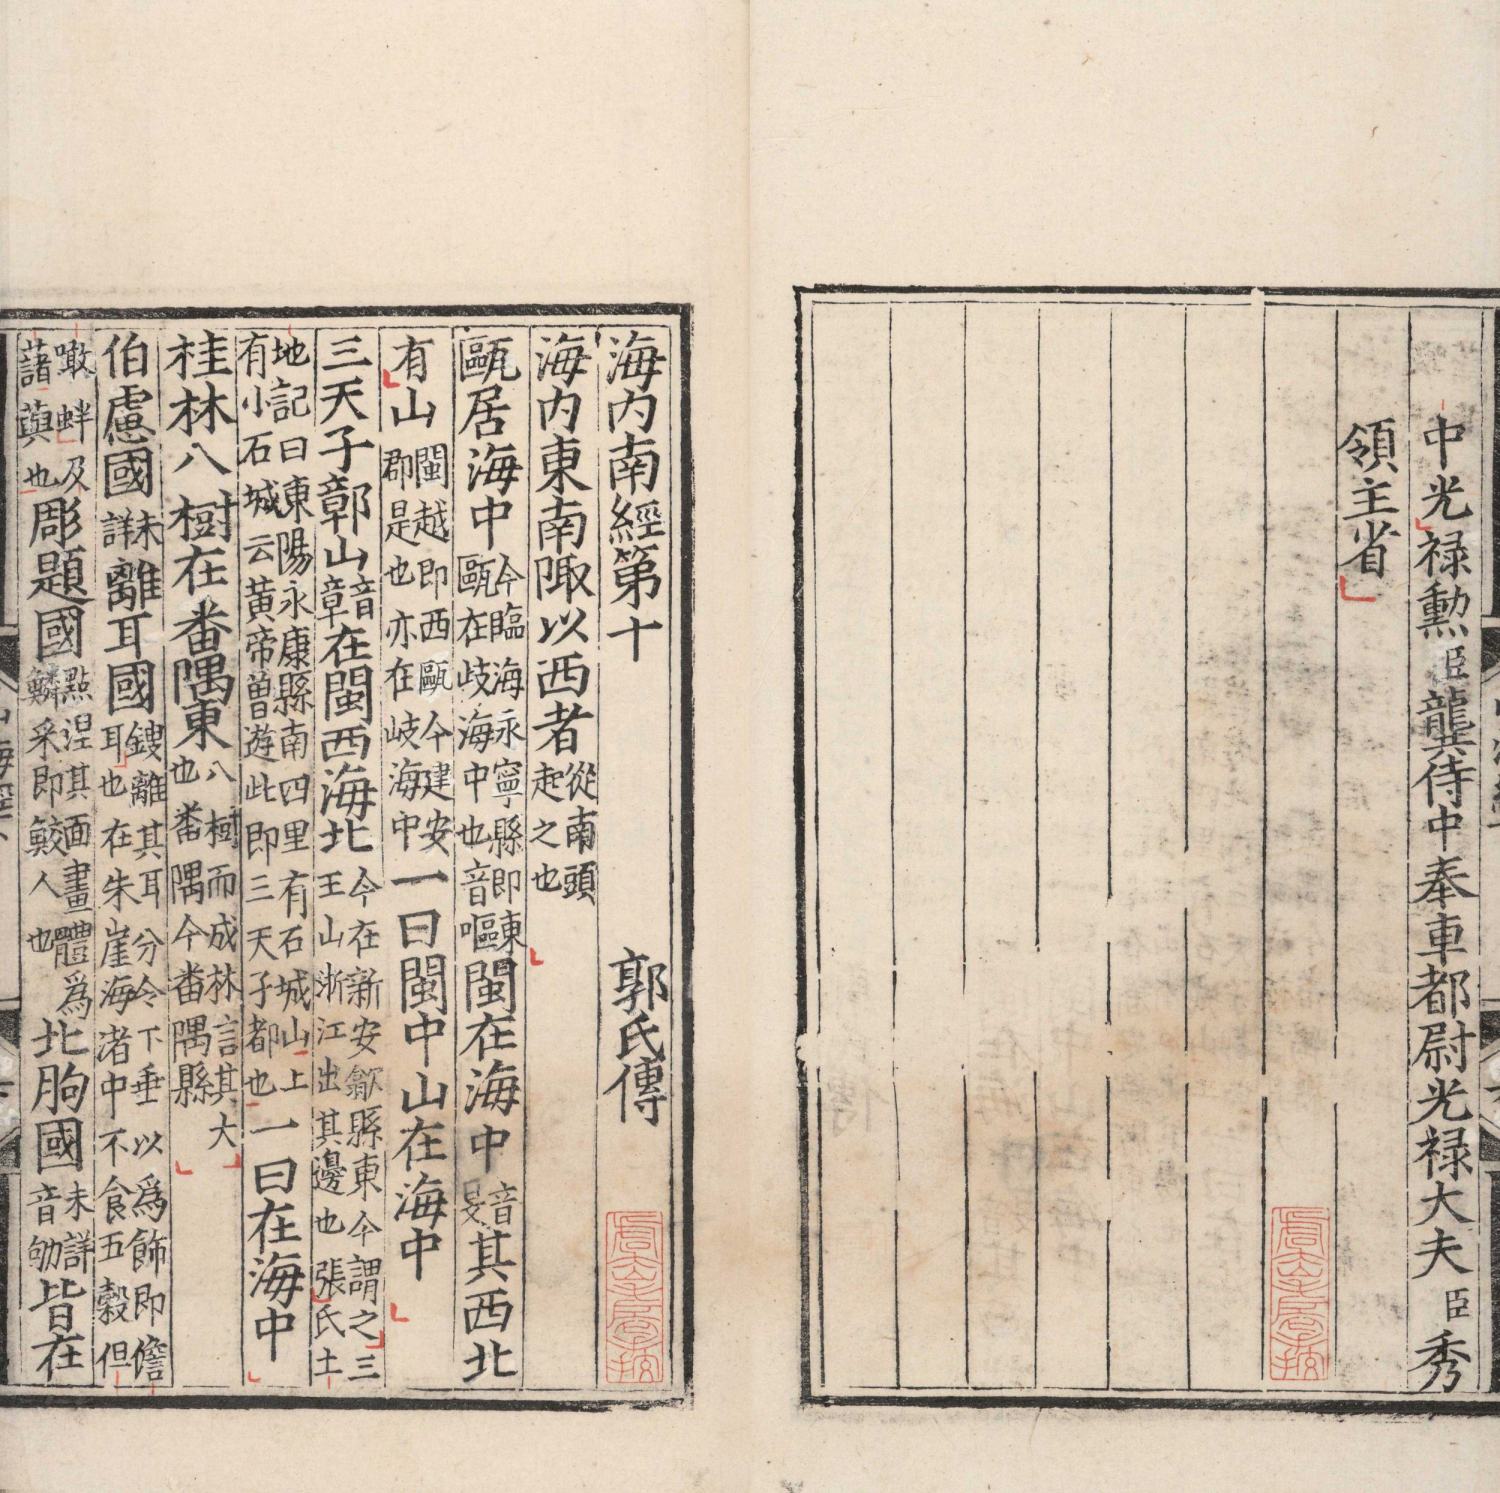 中光禄勲臣龔侍中奉車都尉光禄大夫臣秀
領主省
海内南經第十 郭氏傳
海内東南陬以西者從南頭起之也
甌居海中今臨海永寧縣即東甌在岐海中也音嘔閩在海中音旻其西北
有山閩越即西甌今建安郡是也亦在岐海中一曰閩中山在海中
三天子鄣山音章在閩西海北今在新安歙縣東今謂之三王山浙江出其邊也張氏土
地記曰東陽永康縣南四里有石城山上有小石城云黄帝曽遊此即三天子都也一曰在海中
桂林八樹在番隅東八樹而成林言其大也番隅今番隅縣
伯慮國未詳離耳國鎪離其耳分令下垂以爲飾即儋耳也在朱崖海渚中不食五穀但
噉蚌及藷藇也彫題國點涅其面畫體爲鱗采即鮫人也北朐國音劬未詳皆在